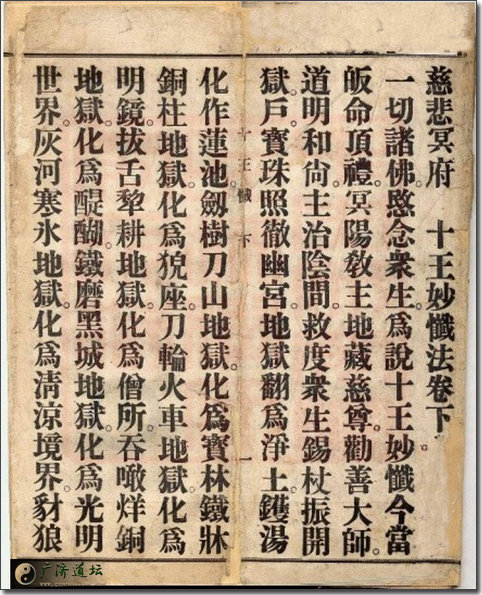 慈悲冥府　十王妙懺法卷下
一切諸佛。愍念衆生。爲說十王妙懺。今當
皈命頂禮。冥陽教主。地藏慈尊。勸善大師。
道明和尙。主治陰間。救度衆生。錫杖振開
獄戶。寶珠照徹幽宮。地獄翻爲淨土。鑊湯
十王懺　下　一
化作蓮池。劔樹刀山地獄。化爲寶林。鐵牀
銅柱地獄。化爲猊座。刀輪火車地獄。化爲
明鏡。拔舌犂耕地獄。化爲僧所。吞噉烊銅
地獄。化爲醍醐。鐵磨黑城地獄。化爲光明
世界。灰河寒氷地獄。化爲清涼境界。豺狼
广济道坛